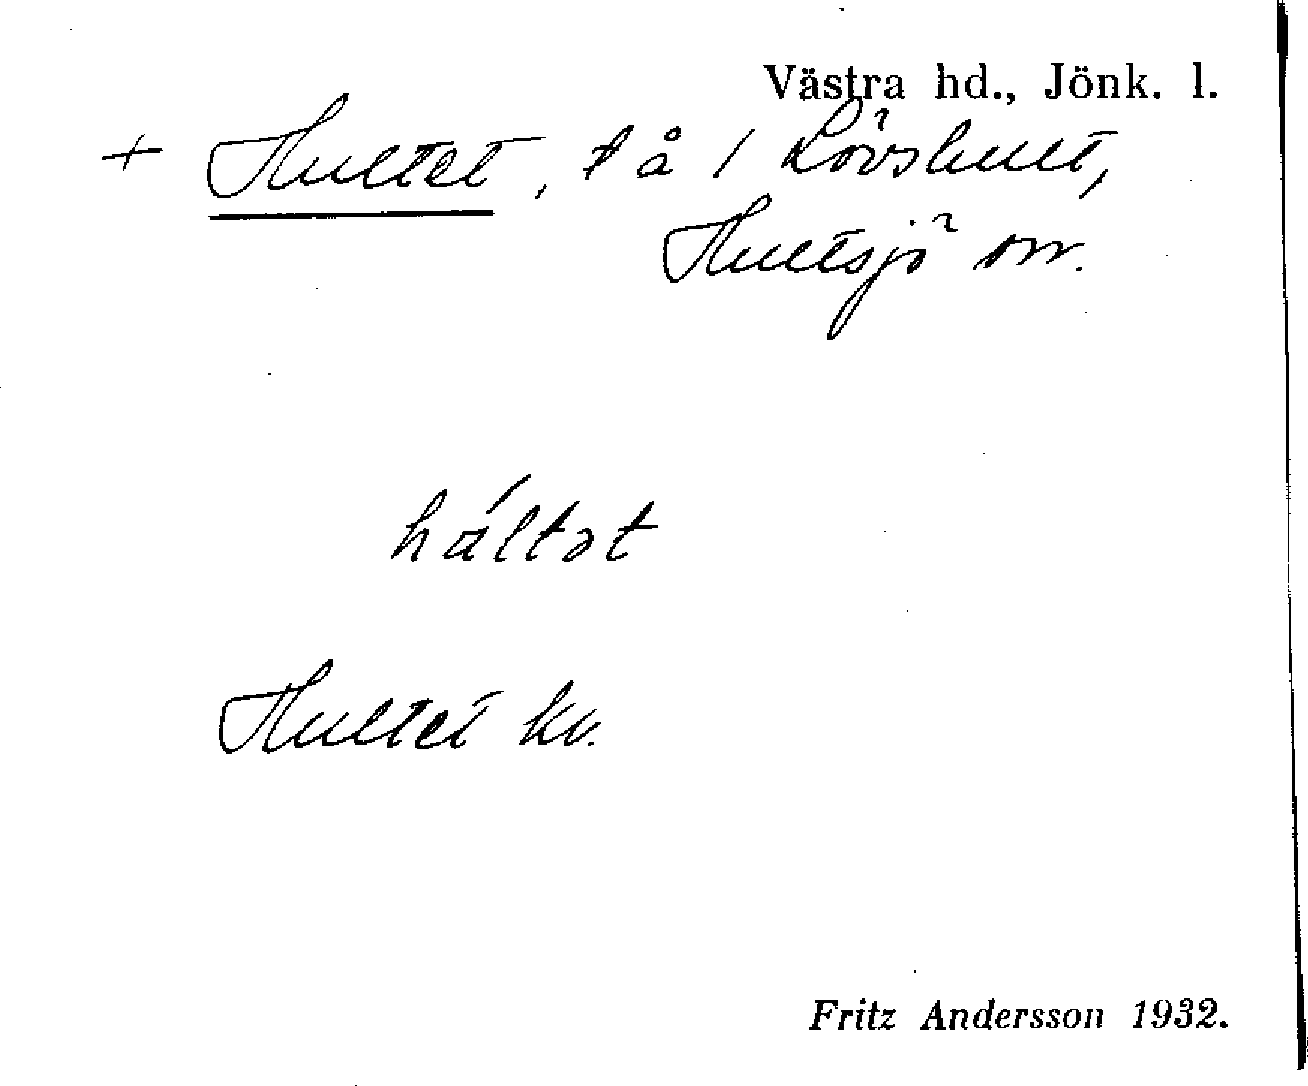 Västra hd., Jönk. l.
+ Hultet, t å / Lövshult,
Hultsjö sn.
háltət
Hultet kv.
Fritz Andersson 1932.